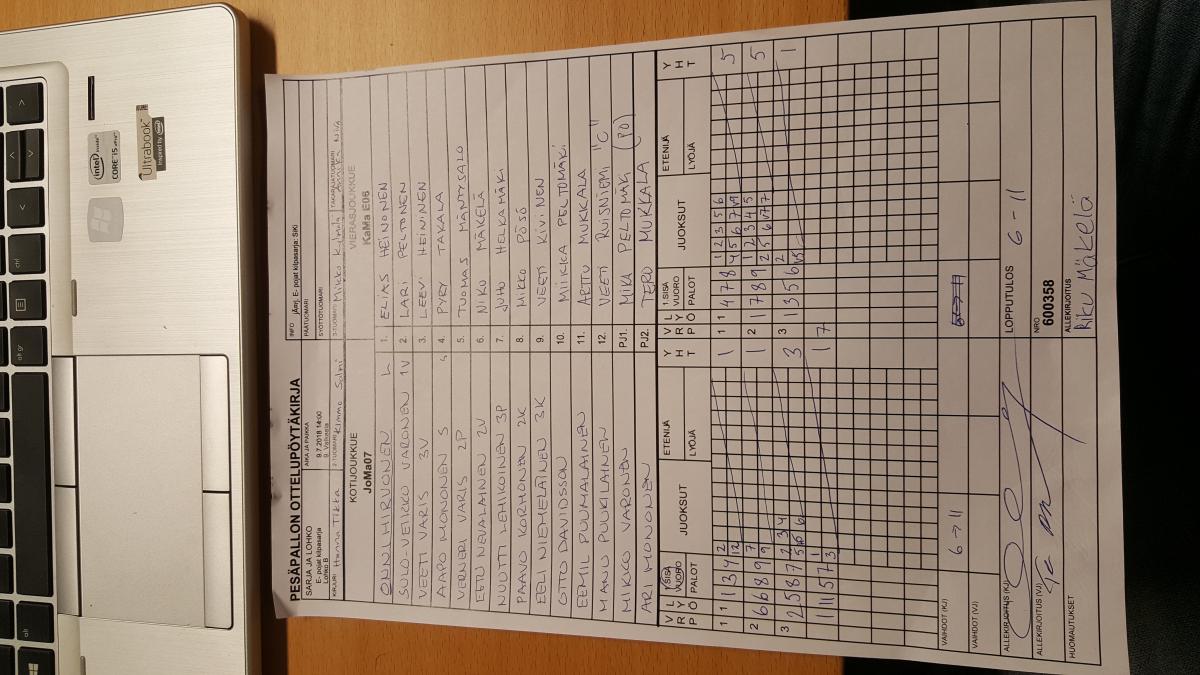 PESÄPALLON OTTELUPÖYTÄKIRJA
SARJA JA LOHKO
E- pojat kilpasarja
Lohko B
AIKA JA PAIKKA
9.7.2018 14:00
INFO
jÄrrj. E- pojat kilpasarja: SiKi
PÄÄTUOMARI
SYÖTTÖTUOMARI
KIRJURI Hanna Tikka
2-TUOMARI Kimmo Salmi
3-TUOMARI Mikko
TAKARAJATUOMARI
KOTIJOUKKUE
JoMa07
VIERASJOUKKUE
KaMa E06
ONNI HIRVONEN L
1. ELIAS HEINONEN
SULO-VEIKKO VARONEN 1V
2 LARI PELTONEN
VEETI VARIS 3V
3. LEEVI HEININEN
AAPO MONONEN S
4. PYRY TAKALA
VERNERI VARIS 2P
5. TUOMAS MÄNTYSALO
EETU NEVALAINEN 2V
6. NIKO MÄKELÄ
NUUTTI LEHIKOINEN 3P
7. JUHO HELKAMÄKI
PAAVO KORHONEN 2K
8. MIKKO PÖSÖ
EELI NIEMELÄINEN 3K
9. VEETI KIVINEN
OTTO DAVIDSSON
10. MIIKKA PELTOMÄKI
EEMIL PUUMALAINEN
11. ARTTU MUKKALA
MANU PUUKILAINEN
12. VEETI RUISNIEMI "C"
MIKKO VARONEN
PJ1. MIKA PELTOMÄKI (PO)
ARI MONONEN
PJ2. TERO MUKKALA
V R P L Y Ö 1.SISÄ VUORO PALOT JUOKSUT ETENIJÄ LYÖJÄ Y H T
V R P L Y Ö 1.SISÄ VUORO PALOT JUOKSUT ETENIJÄ LYÖJÄ Y H T
1 1 1 3 4 2 12 1
1 1 4 7 8 1 2 3 5 6 5
2 6 6 8 9 7 9 1
2 1 7 8 9 1 2 3 4 5 5
3 2 5 8 7 2 3 4 3
3 1 3 5 6 2 1
1 1 5 7 1 3 1
7
VAIHDOT (KJ) 6 → 11
VAIHDOT (VJ)
ALLEKIRJOITUS (KJ)
LOPPUTULOS 6 - 11
ALLEKIRJOITUS (VJ)
NRO
600358
HUOMAUTUKSET
ALLEKIRJOITUS
Riku Mäkelä
intel
inside
CORE i5
vPro
Ultrabook
Inspired by
intel
alt
alt gr
ctrl